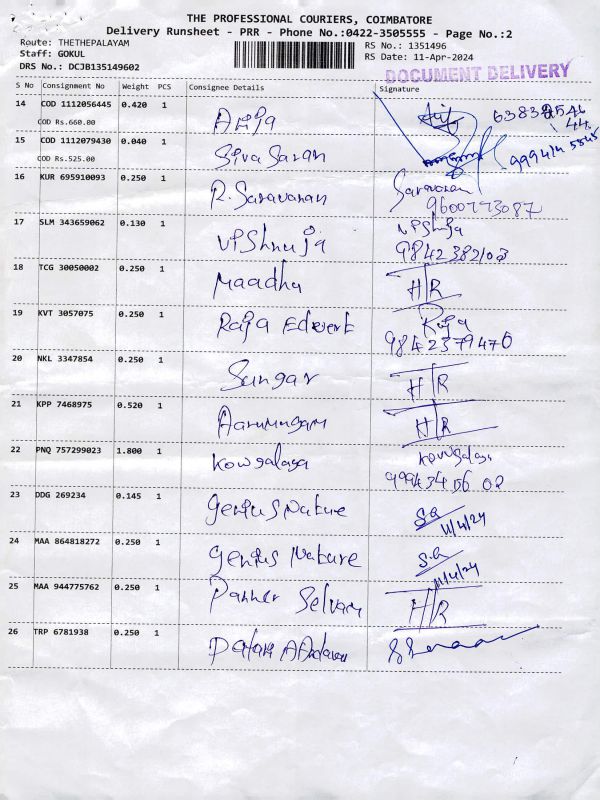 THE PROFESSIONAL COURIERS, COIMBATORE
Delivery Runsheet - PRR - Phone No.:0422-3505555 - Page No.:2
Route: THETHEPALAYAM
Staff: GOKUL
DRS No.: DCJB135149602
RS No.: 1351496
RS Date: 11-Apr-2024
DOCUMENT DELIVERY
S No Consignment No Weight PCS Consignee Details Signature
14 COD 1112056445 0.420 1
COD Rs.660.00
15 COD 1112079430 0.040 1 Siva Saran
COD Rs.525.00
16 KUR 695910093 0.250 1 R. Saravanan Saravanan
9600773087
17 SLM 343659062 0.130 1 VPShnuja VPShnuja
9842382103
18 TCG 30050002 0.250 1 Maadhu H/R
19 KVT 3057075 0.250 1 Raja Edwert Raja
9842379476
20 NKL 3347854 0.250 1 Sungar H/R
21 KPP 7468975 0.520 1 Aarumugam H/R
22 PNQ 757299023 1.800 1 Kowsalaya Kowsalaya
9994345602
23 DDG 269234 0.145 1 Genius Nature
11/4/24
24 MAA 864818272 0.250 1 Genius Nature
11/4/24
25 MAA 944775762 0.250 1 Panner Selvam H/R
26 TRP 6781938 0.250 1